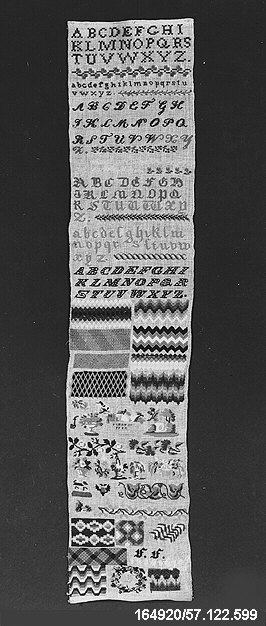 ABCDEFGHI
KLMNOPQRS
TUVWXYZ.
abcdefghiklmnopqrstu
vwxyz.
ABCDEFGH
IKLMNOPQ
RSTUVWXY
Z.
ABCDEFGH
IKLMNOPQ
RSTUVWXY
Z.
abcdefghiklm
nopqrstuvw
xyz.
ABCDEFGHI
KLMNOPQR
STUVWXYZ.
164920/57.122.599